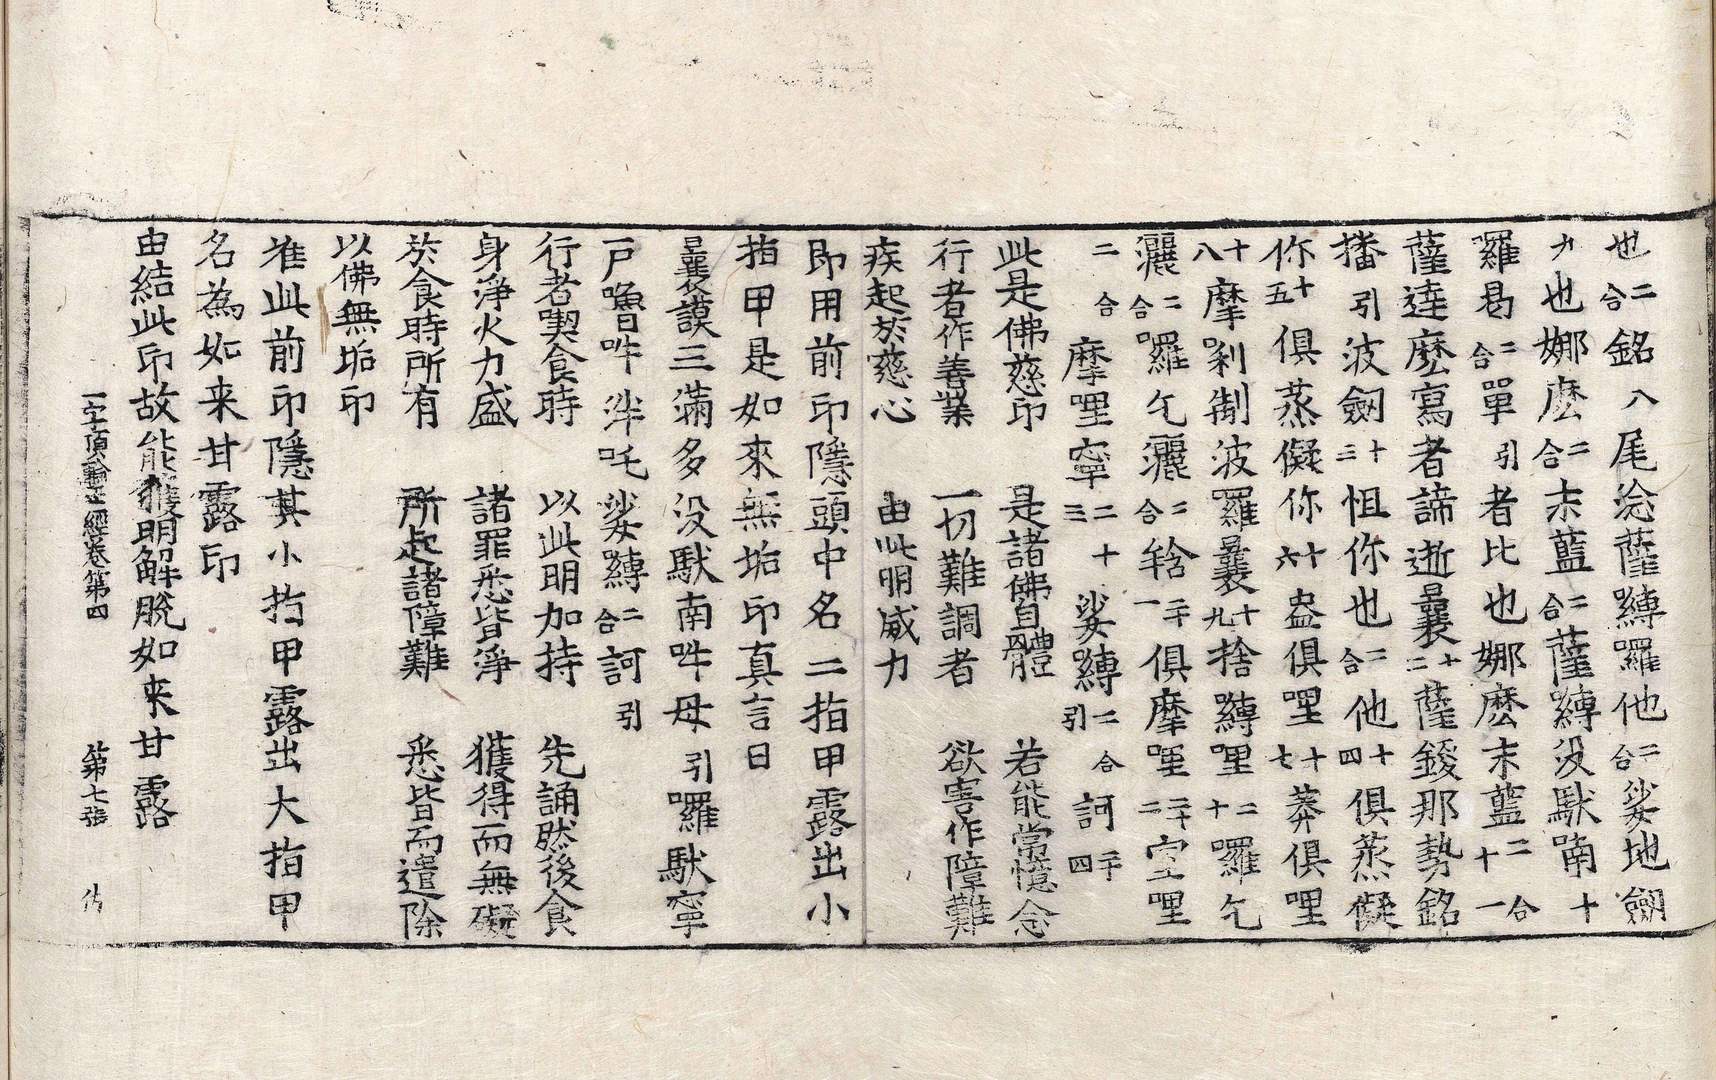 也二合銘八尾淰薩嚩囉他二合娑地劒
九也娜麽二合末藍二合薩嚩没馱喃十
羅曷二合單引者比也娜麽末藍二合十一
薩達麽寫者諦逝曩十二薩鍐那勢銘
播引波劒十三怛你也二合他十四俱蒸儗
你十五俱蒸儗你十六盎俱哩十七莽俱哩
十八摩剎制波羅曩十九捨嚩哩二十囉乞
灑二合囉乞灑二合二十一俱摩哩二十二室哩
二合摩哩寧二十三娑嚩二合引訶二十四
此是佛慈印　是諸佛自體　若能常憶念
行者作善業　一切難調者　欲害作障難
疾起於慈心　由此明威力
即用前印隱頭中名二指甲露出小
指甲是如來無垢印真言曰
曩謨三滿多没馱南吽母引囉馱寧
戸嚕吽泮吒娑嚩二合訶引
行者喫食時　以此明加持　先誦然後食
身淨火力盛　諸罪悉皆淨　獲得而無礙
於食時所有　所起諸障難　悉皆而遣除
以佛無垢印
准此前印隱其小指甲露出大指甲
名為如来甘露印
由結此印故能獲明解脫如来甘露
一字頂輪王經卷第四　第七張